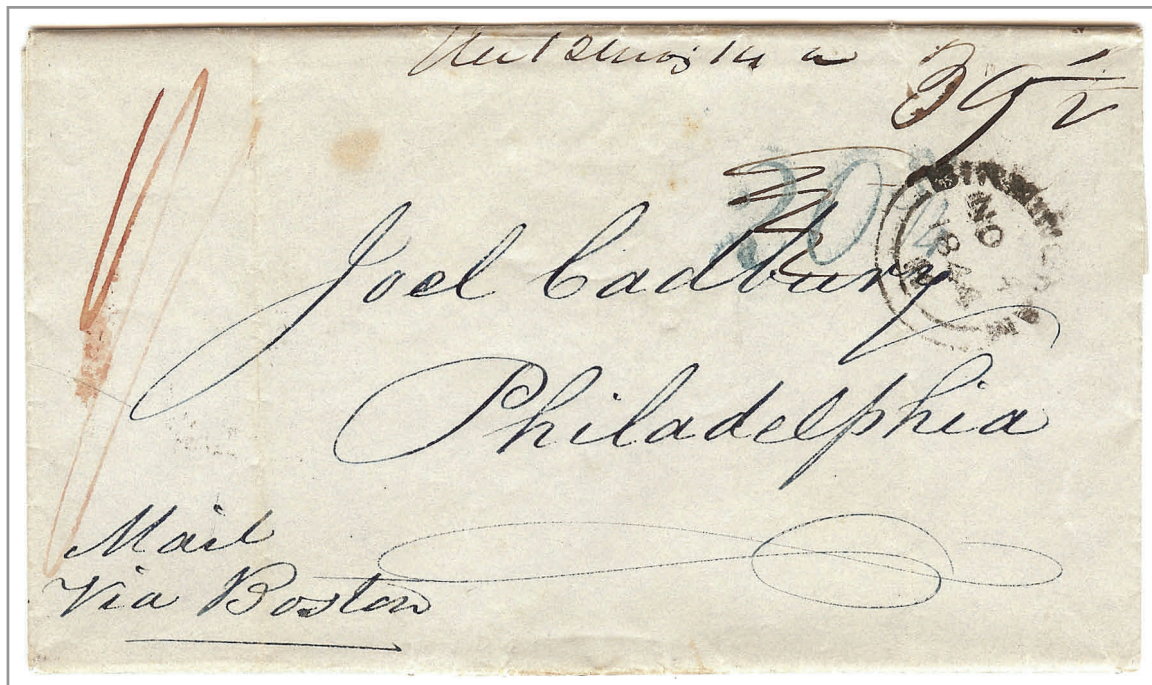 39½
20¾
BIRMINGHAM
NO
Joel Cadbury
Philadelphia
Mail
Via Boston